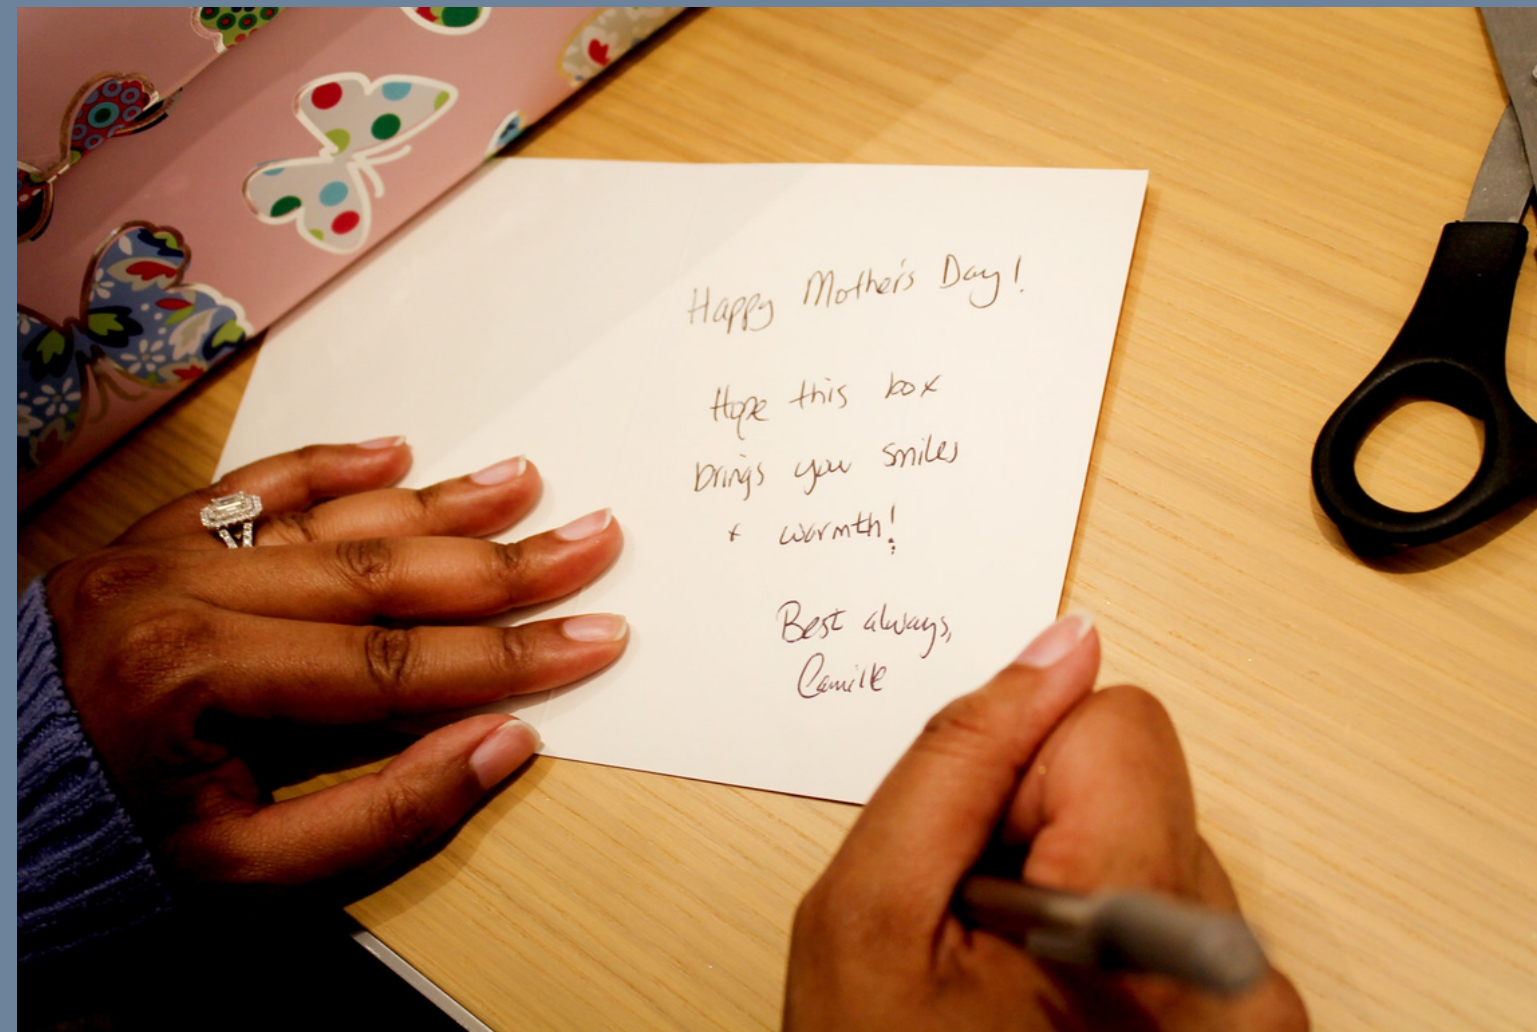 Happy Mother's Day!
Hope this box
brings you smiles
+ warmth!
Best always,
Camille